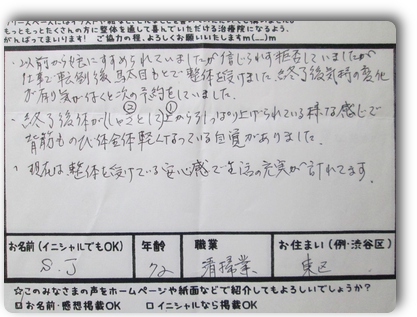 もっともっとたくさんの方に整体を通して喜んでいただける治療院になるよう、
がんばってまいります! ご協力の程、よろしくお願いいたしますm(__)m
・以前から妹にすすめられていましたが信じられず拒否していましたが
仕事で転倒後 駄目もとで整体を受けました。終了後気持の変化
が有り気が付くと次の予約をしていました。
② ①
・終了後体がしゃきっとして上から引っぱり上げられている様な感じで
背筋ものび体全体軽くなっている自覚がありました。
・現在は整体を受けている安心感で生活の充実が計れてます。
お名前(イニシャルでもOK) 年齢 職業 お住まい(例・渋谷区)
S.J 72 清掃業 東区
☆このみなさまの声をホームページや紙面などで紹介してもよろしいでしょうか?
□お名前・感想掲載OK □イニシャルなら掲載OK